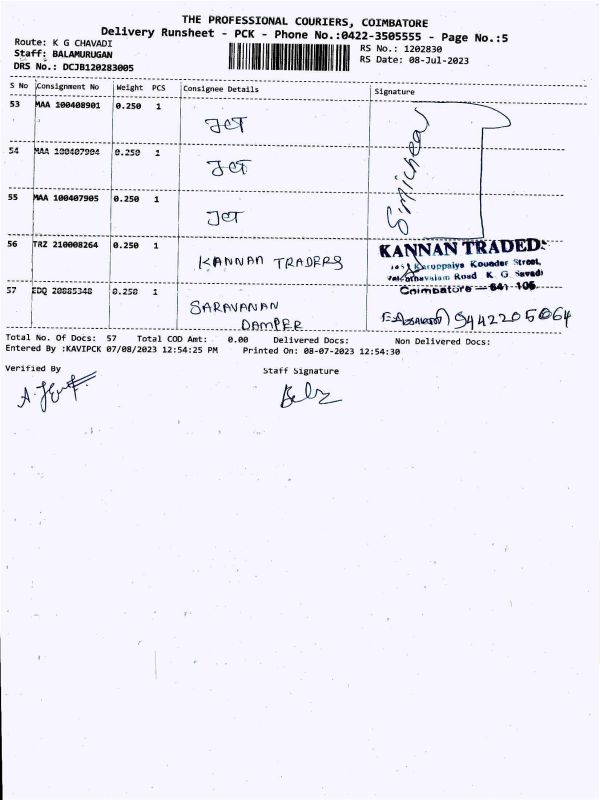 THE PROFESSIONAL COURIERS, COIMBATORE
Delivery Runsheet - PCK - Phone No.:0422-3505555 - Page No.:5
Route: K G CHAVADI
RS No.: 1202830
Staff: BALAMURUGAN
RS Date: 08-Jul-2023
DRS No.: DCJB120283005
S No Consignment No Weight PCS Consignee Details Signature
53 MAA 100408901 0.250 1
JCT
54 MAA 100407904 0.250 1
JCT
55 MAA 100407905 0.250 1
JCT
56 TRZ 210008264 0.250 1
KANNAN TRADERS
KANNAN TRADERS
Karuppaiya Kounder Street,
Road K. G Savadi
Coimbatore — 641 105
57 EDQ 20885348 0.250 1
SARAVANAN
DAMPER
Total No. Of Docs: 57 Total COD Amt: 0.00 Delivered Docs: Non Delivered Docs:
Entered By :KAVIPCK 07/08/2023 12:54:25 PM Printed On: 08-07-2023 12:54:30
Verified By
Staff Signature